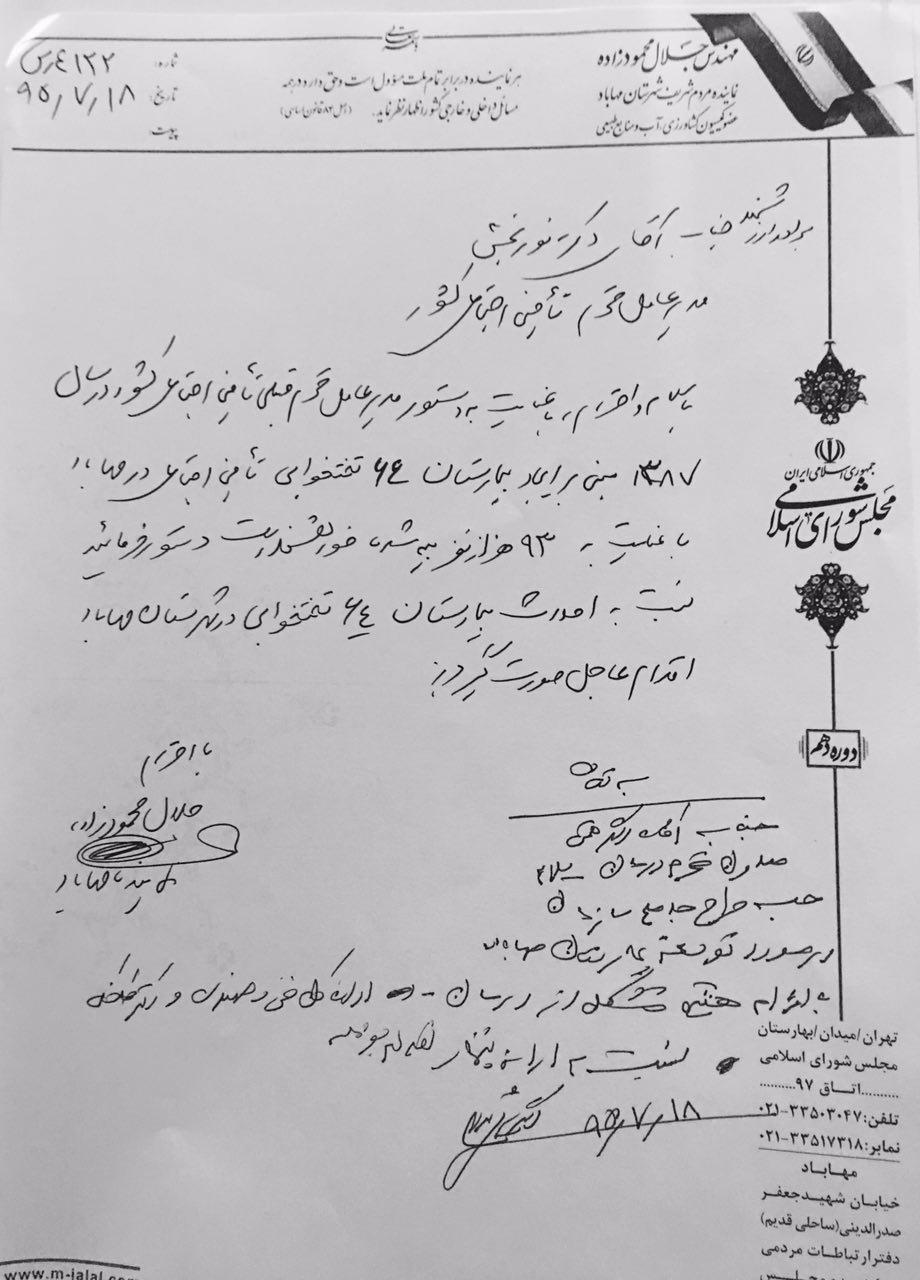 بسمه تعالی
مهندس جلال محمودزاده
نماینده مردم شریف شهرستان مهاباد
عضو کمیسیون کشاورزی، آب و منابع طبیعی
هر نماینده در برابر تمام ملت مسؤول است و حق دارد در همه
مسائل داخلی و خارجی کشور اظهار نظر نماید. (اصل ۸۴ قانون اساسی)
شماره: ۴۱۲۲
تاریخ: ۹۵/۷/۱۸
پیوست:
برادر ارزشمند جناب آقای دکتر نوربخش
مدیر عامل محترم تأمین اجتماعی کشور
با سلام و احترام، با عنایت به دستور مدیر عامل محترم قبلی تأمین اجتماعی کشور در سال
۱۳۸۷ مبنی بر ایجاد بیمارستان ۶۴ تختخوابی تأمین اجتماعی در مهاباد
با عنایت به ۹۳ هزار نفر بیمه شده خواهشمند است دستور فرمائید
نسبت به احداث بیمارستان ۶۴ تختخوابی در شهرستان مهاباد
اقدام عاجل صورت گیرد
با احترام
جلال محمودزاده
نماینده مهاباد
جناب آقای دکتر
محترم درمان
طرح جامع سازمان
در مورد توسعه بیمارستان مهاباد
درمان - اداره کل فنی و مهندسی و
نسبت به ارائه
۹۵/۷/۱۸
جمهوری اسلامی ایران
مجلس شورای اسلامی
دوره دهم
تهران/میدان/بهارستان
مجلس شورای اسلامی
..........اتـاق ۹۷.........
تلفن:۳۳۵۰۳۰۴۷-۰۲۱
نمابر:۳۳۵۱۷۳۱۸-۰۲۱
مهـابـاد
خیابـان شهیـدجعفـر
صدرالدینی(ساحلی قدیم)
دفتر ارتباطـات مردمی
www.m-jalal.com